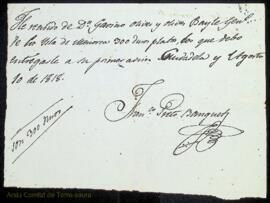 He recivido de Dn. Gavino oliver y olives Bayle Genl.
de la Ysla de Menorca 300 duros plata, los que debo
entregarle a su primer aviso Ciudadela y Agosto
10 de 1818.
Son 300 duros
Franco. Banquels
Arxiu Comtal de Torre-saura